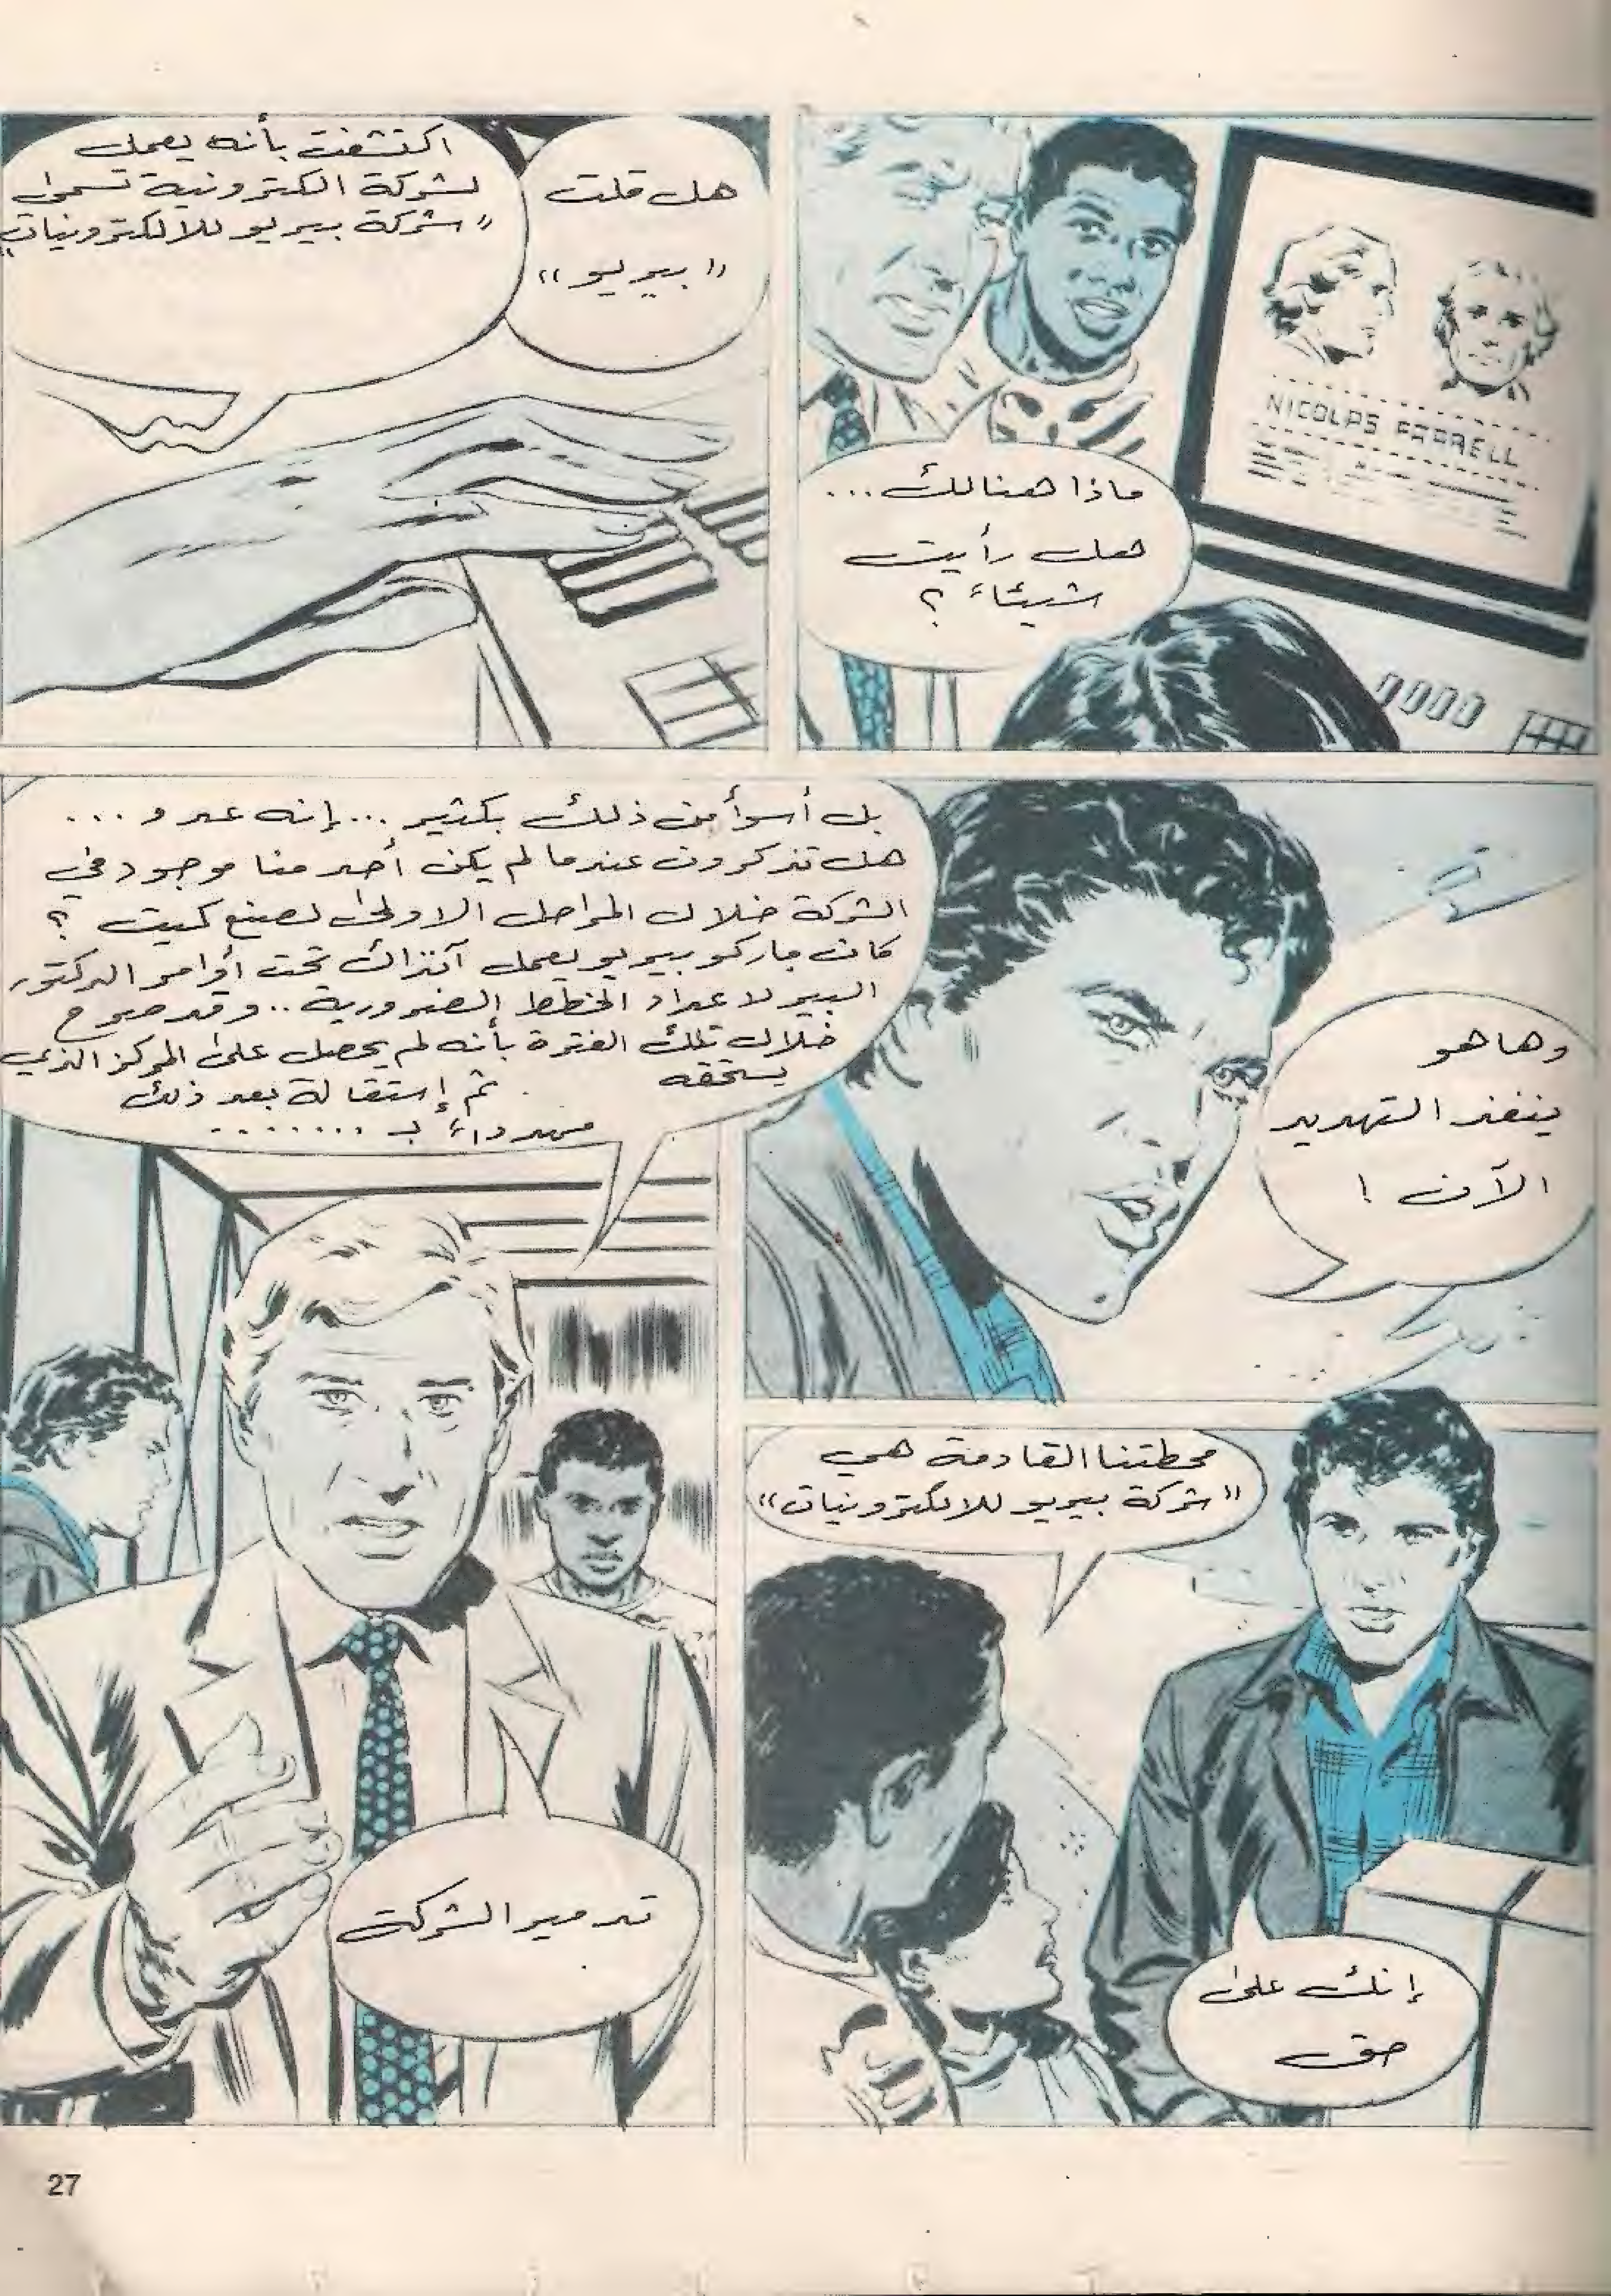 NICOLAS FARRELL
ماذا هنالك ...
هل رأيت
شيئاً ؟
اكتشفت بأنه يعمل
لشركة الكترونية تسمى
"شركة بيريو للالكترونيات"
هل قلت
"بيريو"
بل أسوأ من ذلك بكثير ... إنه عدو ...
هل تذكرون عندما لم يكن أحد منا موجود في
الشركة خلال المراحل الاولى لصنع كيت ؟
كان ماركو بيريو يعمل آنذاك تحت أوامر الدكتور
البير لاعداد الخطط الضرورية .. وقد صرح
خلال تلك الفترة بأنه لم يحصل على المركز الذي
يستحقه
ثم إستقالة بعد ذلك
مهدداً بـ .......
تدمير الشركة
وها هو
ينفذ التهديد
الآن !
محطتنا القادمة هي
"شركة بيريو للالكترونيات"
إنك على
حق
27